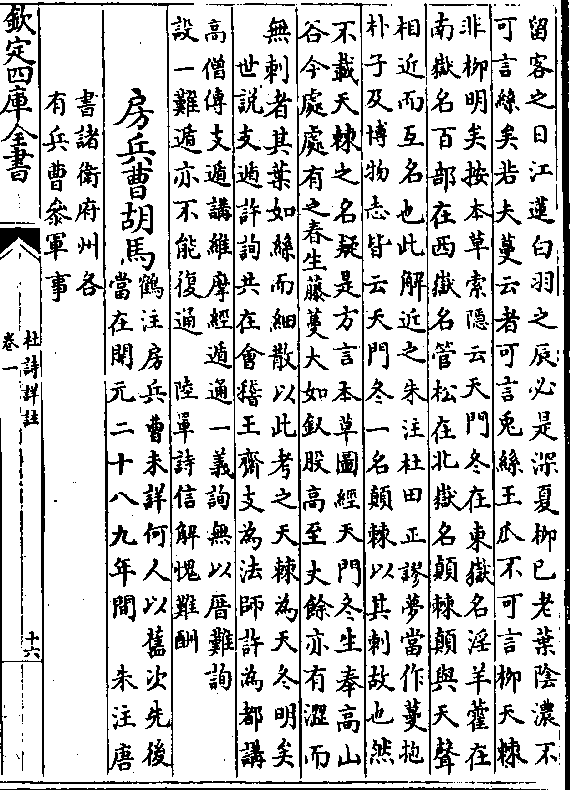 留客之日江蓮白羽之辰必是深夏柳已老葉陰濃不
可言絲矣若夫蔓云者可言兎絲王瓜不可言柳天棘
非柳明矣按本草索隠云天門冬在東嶽名淫羊藿在
南嶽名百部在西嶽名管松在北嶽名顛棘顛與天聲
相近而互名也此解近之朱注杜田正謬夢當作蔓抱
朴子及博物志皆云天門冬一名顛棘以其刺故也然
不載天棘之名疑是方言本草圖經天門冬生奉高山
谷今處處有之春生藤蔓大如釵股高至丈餘亦有澀而
無刺者其葉如絲而細散以此考之天棘為天冬明矣
世說支遁許詢共在會稽王齋支為法師許為都講
高僧傳支遁講維摩經遁通一義詢無以厝難詢
設一難遁亦不能復通 陸單詩信解愧難酬
房兵曹胡馬
鶴注房兵曹未詳何人以舊次先後
當在開元二十八九年間 朱注唐
書諸衛府州各
有兵曹參軍事
欽定四庫全書
杜詩詳註
卷一
十六